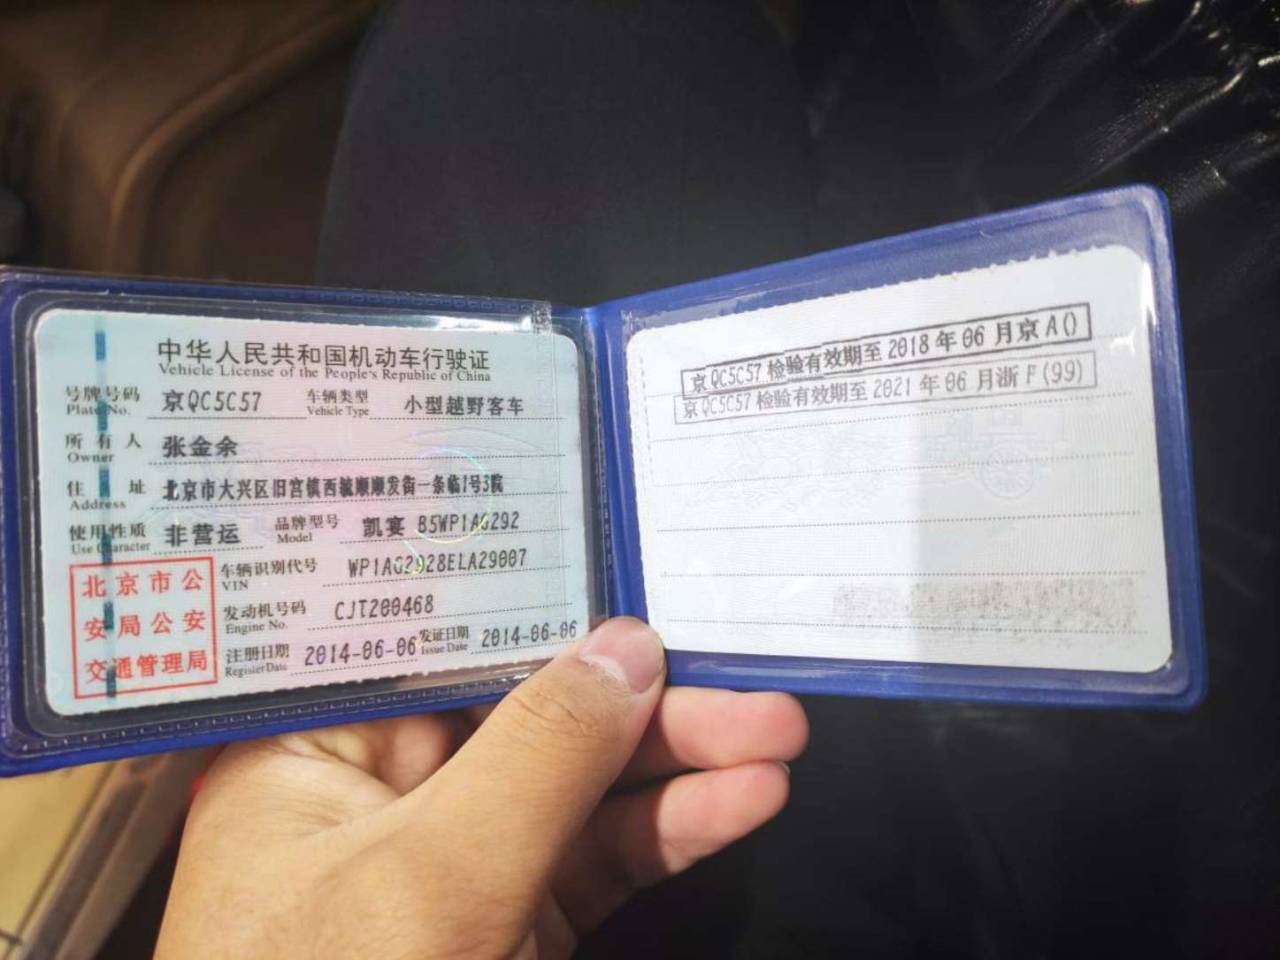 中华人民共和国机动车行驶证
Vehicle License of the People's Republic of China
号牌号码 京QC5C57 车辆类型 小型越野客车
Plate No. Vehicle Type
所有人 张金余
Owner
住址 北京市大兴区旧宫镇西毓顺顺发街一条临1号3院
Address
使用性质 非营运 品牌型号 凯宴 B5WP1AG292
Use Character Model
车辆识别代号 WP1AG2928ELA29007
VIN
发动机号码 CJT200468
Engine No.
注册日期 2014-06-06 发证日期 2014-06-06
Register Date Issue Date
北京市公
安局公安
交通管理局
京QC5C57 检验有效期至 2018 年 06 月京 A()
京QC5C57 检验有效期至 2021 年 06 月浙 F(99)